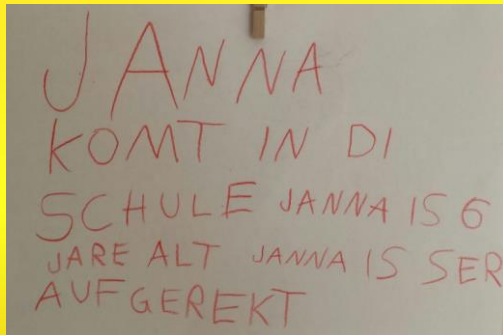 JANNA
KOMT IN DI
SCHULE JANNA IS 6
JARE ALT JANNA IS SER
AUFGEREKT